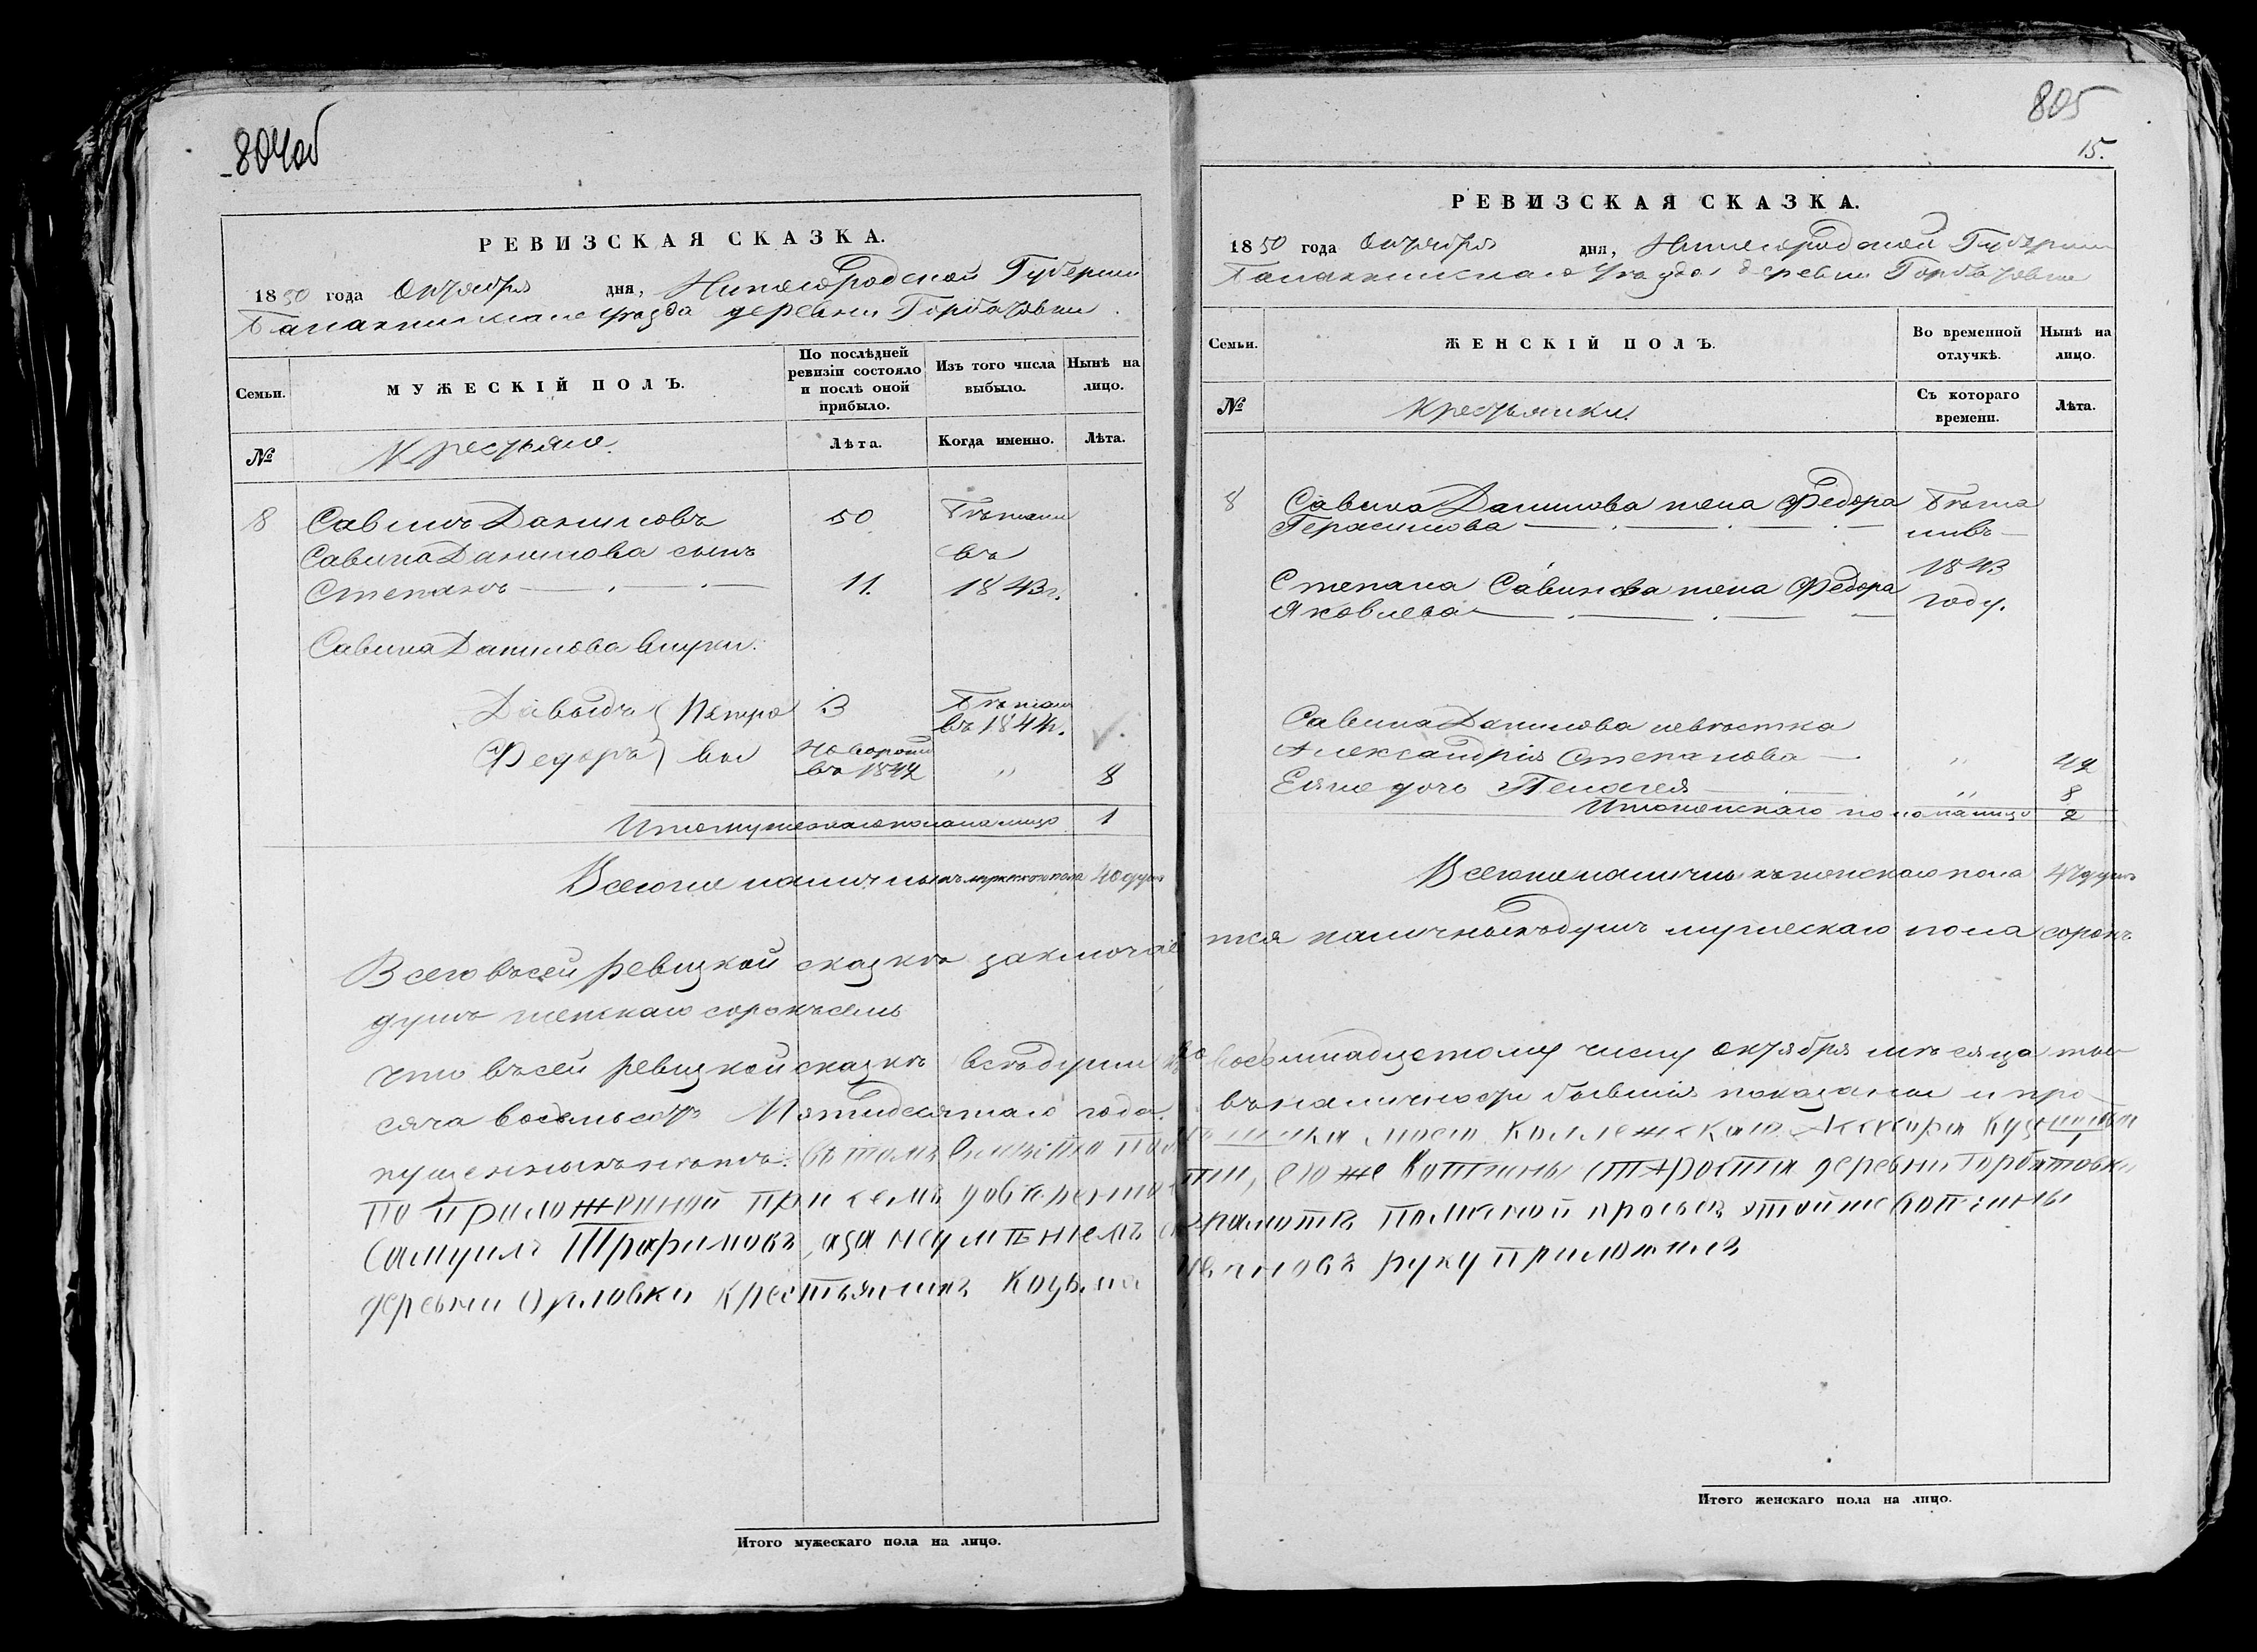 804об
РЕВИЗСКАЯ СКАЗКА.
1850 года Октября дня, Нижегородской Губернии
Балахнинскаго Уѣзда деревни Горбатовки
Семьи.
МУЖЕСКІЙ ПОЛЪ.
По послѣдней ревизіи состояло и послѣ оной прибыло.
Изъ того числа выбыло.
Нынѣ на лицо.
№
Крестьяне.
Лѣта.
Когда именно.
Лѣта.
8 Савинъ Даниловъ 50 Бѣжали
Савина Данилова сынъ въ
Степанъ 11. 1843г.
Савина Данилова внуки:
Давыдъ Петро 3 Бѣжалъ въ 1844г.
Федоръ вы Новорожд въ 1842 " 8
Итого мужескаго пола на лицо 1
Всего же наличныхъ мужескаго пола 40 душъ
805
15.
РЕВИЗСКАЯ СКАЗКА.
1850 года Октября дня, Нижегородской Губернии
Балахнинскаго Уѣзда деревни Горбатовки
Семьи.
ЖЕНСКІЙ ПОЛЪ.
Во временной отлучкѣ.
Нынѣ на лицо.
№
Крестьянки.
Съ котораго времени.
Лѣта.
8 Савина Данилова жена Федора Бѣжа
Герасимова ливъ
Степана Савинова жена Федора 1843
Яковлева году.
Савина Данилова невѣстка
Александрія Степанова " 42
Ея же дочь Пелагея " 8
Итого женскаго пола на лицо 2
Всего же наличныхъ женскаго пола 47 душъ
Всего въ сей ревизкой сказкѣ заключается наличныхъ душъ мужескаго пола сорокъ
душъ женскаго сорокъ семь
что въ сей ревизкой сказкѣ всѣ души ко восьмнадцетому числу октября мѣсяца тыи
сяча восемьсотъ Пятидесятаго года въ наличности бывшия показаны и про
пущенныхъ нѣтъ. Въ томъ Вмѣсто помѣщика моего Коллежскаго Ассесора
по приложенной при семъ довѣренности, его же Вотчины староста деревни Горбатовки
Самуилъ Трафимовъ, а за неумѣниемъ грамотѣ По личной прозбѣ этой же вотчины
деревни Орловки крестьянинъ Козьма Ивановъ руку приложилъ
Итого мужескаго пола на лицо.
Итого женскаго пола на лицо.